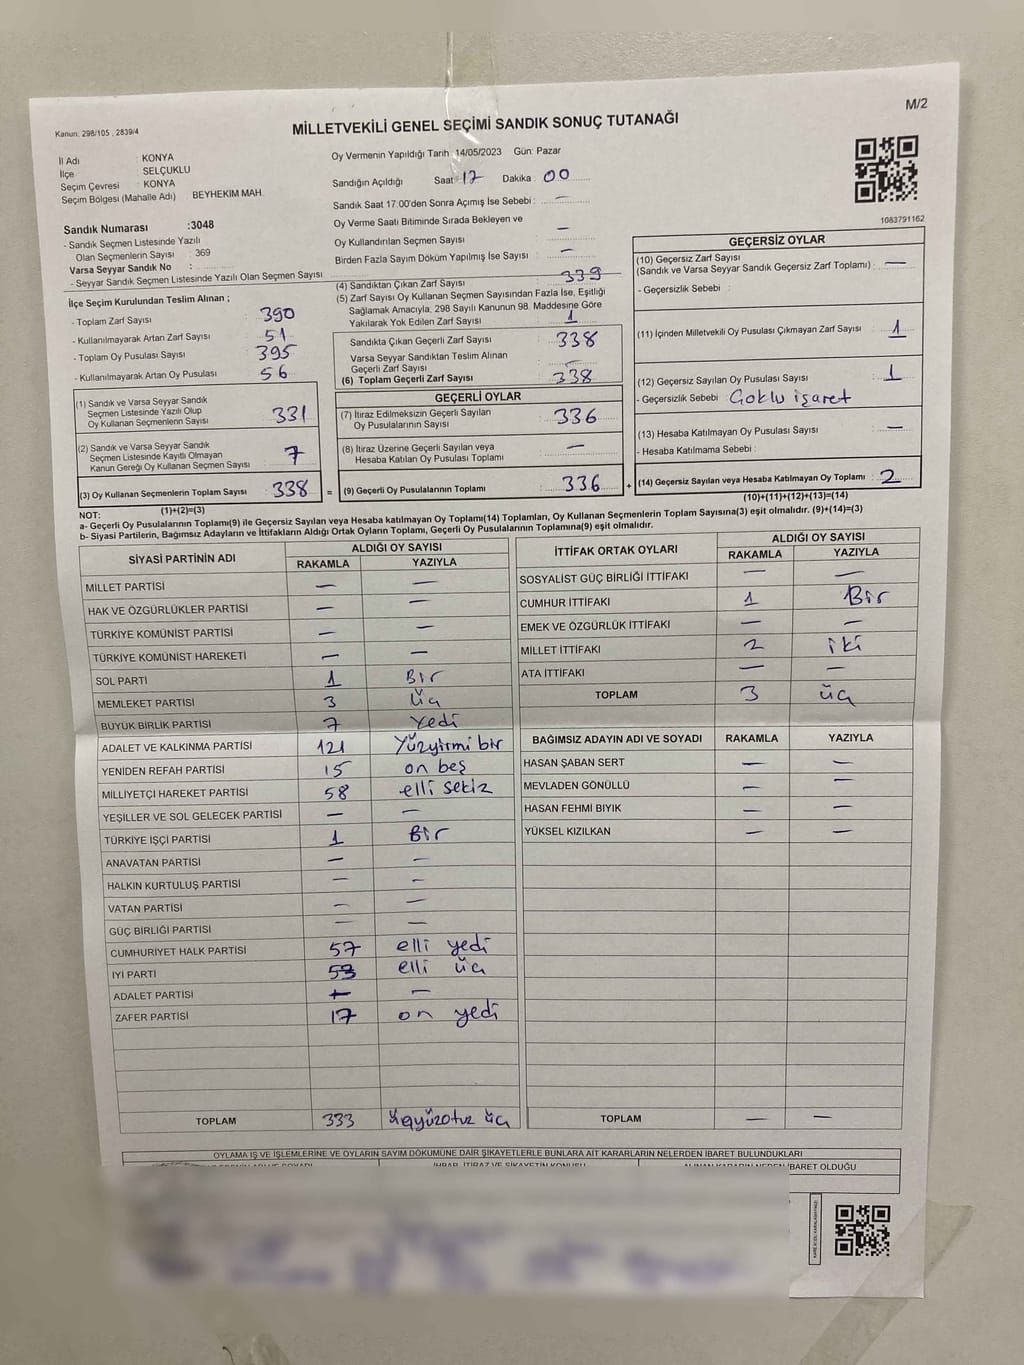 M/2
Kanun: 298/105 , 2839/4
MİLLETVEKİLİ GENEL SEÇİMİ SANDIK SONUÇ TUTANAĞI
İl Adı : KONYA
İlçe : SELÇUKLU
Seçim Çevresi : KONYA
Seçim Bölgesi (Mahalle Adı) BEYHEKIM MAH.
Sandık Numarası :3048
- Sandık Seçmen Listesinde Yazılı
Olan Seçmenlerin Sayısı : 369
Varsa Seyyar Sandık No :
- Seyyar Sandık Seçmen Listesinde Yazılı Olan Seçmen Sayısı
İlçe Seçim Kurulundan Teslim Alınan ;
- Toplam Zarf Sayısı 390
- Kullanılmayarak Artan Zarf Sayısı 51
- Toplam Oy Pusulası Sayısı 395
- Kullanılmayarak Artan Oy Pusulası 56
(1) Sandık ve Varsa Seyyar Sandık
Seçmen Listesinde Yazılı Olup
Oy Kullanan Seçmenlerin Sayısı 331
(2) Sandık ve Varsa Seyyar Sandık
Seçmen Listesinde Kayıtlı Olmayan
Kanun Gereği Oy Kullanan Seçmen Sayısı 7
(3) Oy Kullanan Seçmenlerin Toplam Sayısı 338
(1)+(2)=(3)
Oy Vermenin Yapıldığı Tarih :14/05/2023 Gün: Pazar
Sandığın Açıldığı Saat : 17 Dakika : 00
Sandık Saat 17:00'den Sonra Açımış İse Sebebi : —
Oy Verme Saati Bitiminde Sırada Bekleyen ve
Oy Kullandırılan Seçmen Sayısı —
Birden Fazla Sayım Döküm Yapılmış İse Sayısı : —
(4) Sandıktan Çıkan Zarf Sayısı 339
(5) Zarf Sayısı Oy Kullanan Seçmen Sayısından Fazla İse, Eşitliği
Sağlamak Amacıyla; 298 Sayılı Kanunun 98. Maddesine Göre
Yakılarak Yok Edilen Zarf Sayısı 1
Sandıkta Çıkan Geçerli Zarf Sayısı 338
Varsa Seyyar Sandıktan Teslim Alınan
Geçerli Zarf Sayısı —
(6) Toplam Geçerli Zarf Sayısı 338
GEÇERLİ OYLAR
(7) İtiraz Edilmeksizin Geçerli Sayılan
Oy Pusulalarının Sayısı 336
(8) İtiraz Üzerine Geçerli Sayılan veya
Hesaba Katılan Oy Pusulası Toplamı —
= (9) Geçerli Oy Pusulalarının Toplamı 336 +
1083791162
GEÇERSİZ OYLAR
(10) Geçersiz Zarf Sayısı
(Sandık ve Varsa Seyyar Sandık Geçersiz Zarf Toplamı) : —
- Geçersizlik Sebebi :
(11) İçinden Milletvekili Oy Pusulası Çıkmayan Zarf Sayısı 1
(12) Geçersiz Sayılan Oy Pusulası Sayısı 1
- Geçersizlik Sebebi : Çoklu işaret
(13) Hesaba Katılmayan Oy Pusulası Sayısı : —
- Hesaba Katılmama Sebebi :
(14) Geçersiz Sayılan veya Hesaba Katılmayan Oy Toplamı 2
(10)+(11)+(12)+(13)=(14)
NOT:
a- Geçerli Oy Pusulalarının Toplamı(9) ile Geçersiz Sayılan veya Hesaba katılmayan Oy Toplamı(14) Toplamları, Oy Kullanan Seçmenlerin Toplam Sayısına(3) eşit olmalıdır. (9)+(14)=(3)
b- Siyasi Partilerin, Bağımsız Adayların ve İttifakların Aldığı Ortak Oyların Toplamı, Geçerli Oy Pusulalarının Toplamına(9) eşit olmalıdır.
SİYASİ PARTİNİN ADI ALDIĞI OY SAYISI
RAKAMLA YAZIYLA
MİLLET PARTİSİ — —
HAK VE ÖZGÜRLÜKLER PARTİSİ — —
TÜRKİYE KOMÜNİST PARTİSİ — —
TÜRKİYE KOMÜNİST HAREKETİ — —
SOL PARTİ 1 Bir
MEMLEKET PARTİSİ 3 üç
BÜYÜK BİRLİK PARTİSİ 7 Yedi
ADALET VE KALKINMA PARTİSİ 121 Yüzyirmi bir
YENİDEN REFAH PARTİSİ 15 on beş
MİLLİYETÇİ HAREKET PARTİSİ 58 elli sekiz
YEŞİLLER VE SOL GELECEK PARTİSİ — —
TÜRKİYE İŞÇİ PARTİSİ 1 Bir
ANAVATAN PARTİSİ — —
HALKIN KURTULUŞ PARTİSİ — —
VATAN PARTİSİ — —
GÜÇ BİRLİĞİ PARTİSİ — —
CUMHURİYET HALK PARTİSİ 57 elli yedi
İYİ PARTİ 53 elli üç
ADALET PARTİSİ — —
ZAFER PARTİSİ 17 on yedi
TOPLAM 333 üçyüzotuz üç
İTTİFAK ORTAK OYLARI ALDIĞI OY SAYISI
RAKAMLA YAZIYLA
SOSYALİST GÜÇ BİRLİĞİ İTTİFAKI — —
CUMHUR İTTİFAKI 1 Bir
EMEK VE ÖZGÜRLÜK İTTİFAKI — —
MİLLET İTTİFAKI 2 iki
ATA İTTİFAKI — —
TOPLAM 3 üç
BAĞIMSIZ ADAYIN ADI VE SOYADI RAKAMLA YAZIYLA
HASAN ŞABAN SERT — —
MEVLADEN GÖNÜLLÜ — —
HASAN FEHMI BIYIK — —
YÜKSEL KIZILKAN — —
TOPLAM — —
OYLAMA İŞ VE İŞLEMLERİNE VE OYLARIN SAYIM DÖKÜMÜNE DAİR ŞİKAYETLERLE BUNLARA AİT KARARLARIN NELERDEN İBARET BULUNDUKLARI
İHBAR, İTİRAZ VE ŞİKAYETİN KONUSU
ALINAN KARARIN NEDEN İBARET OLDUĞU